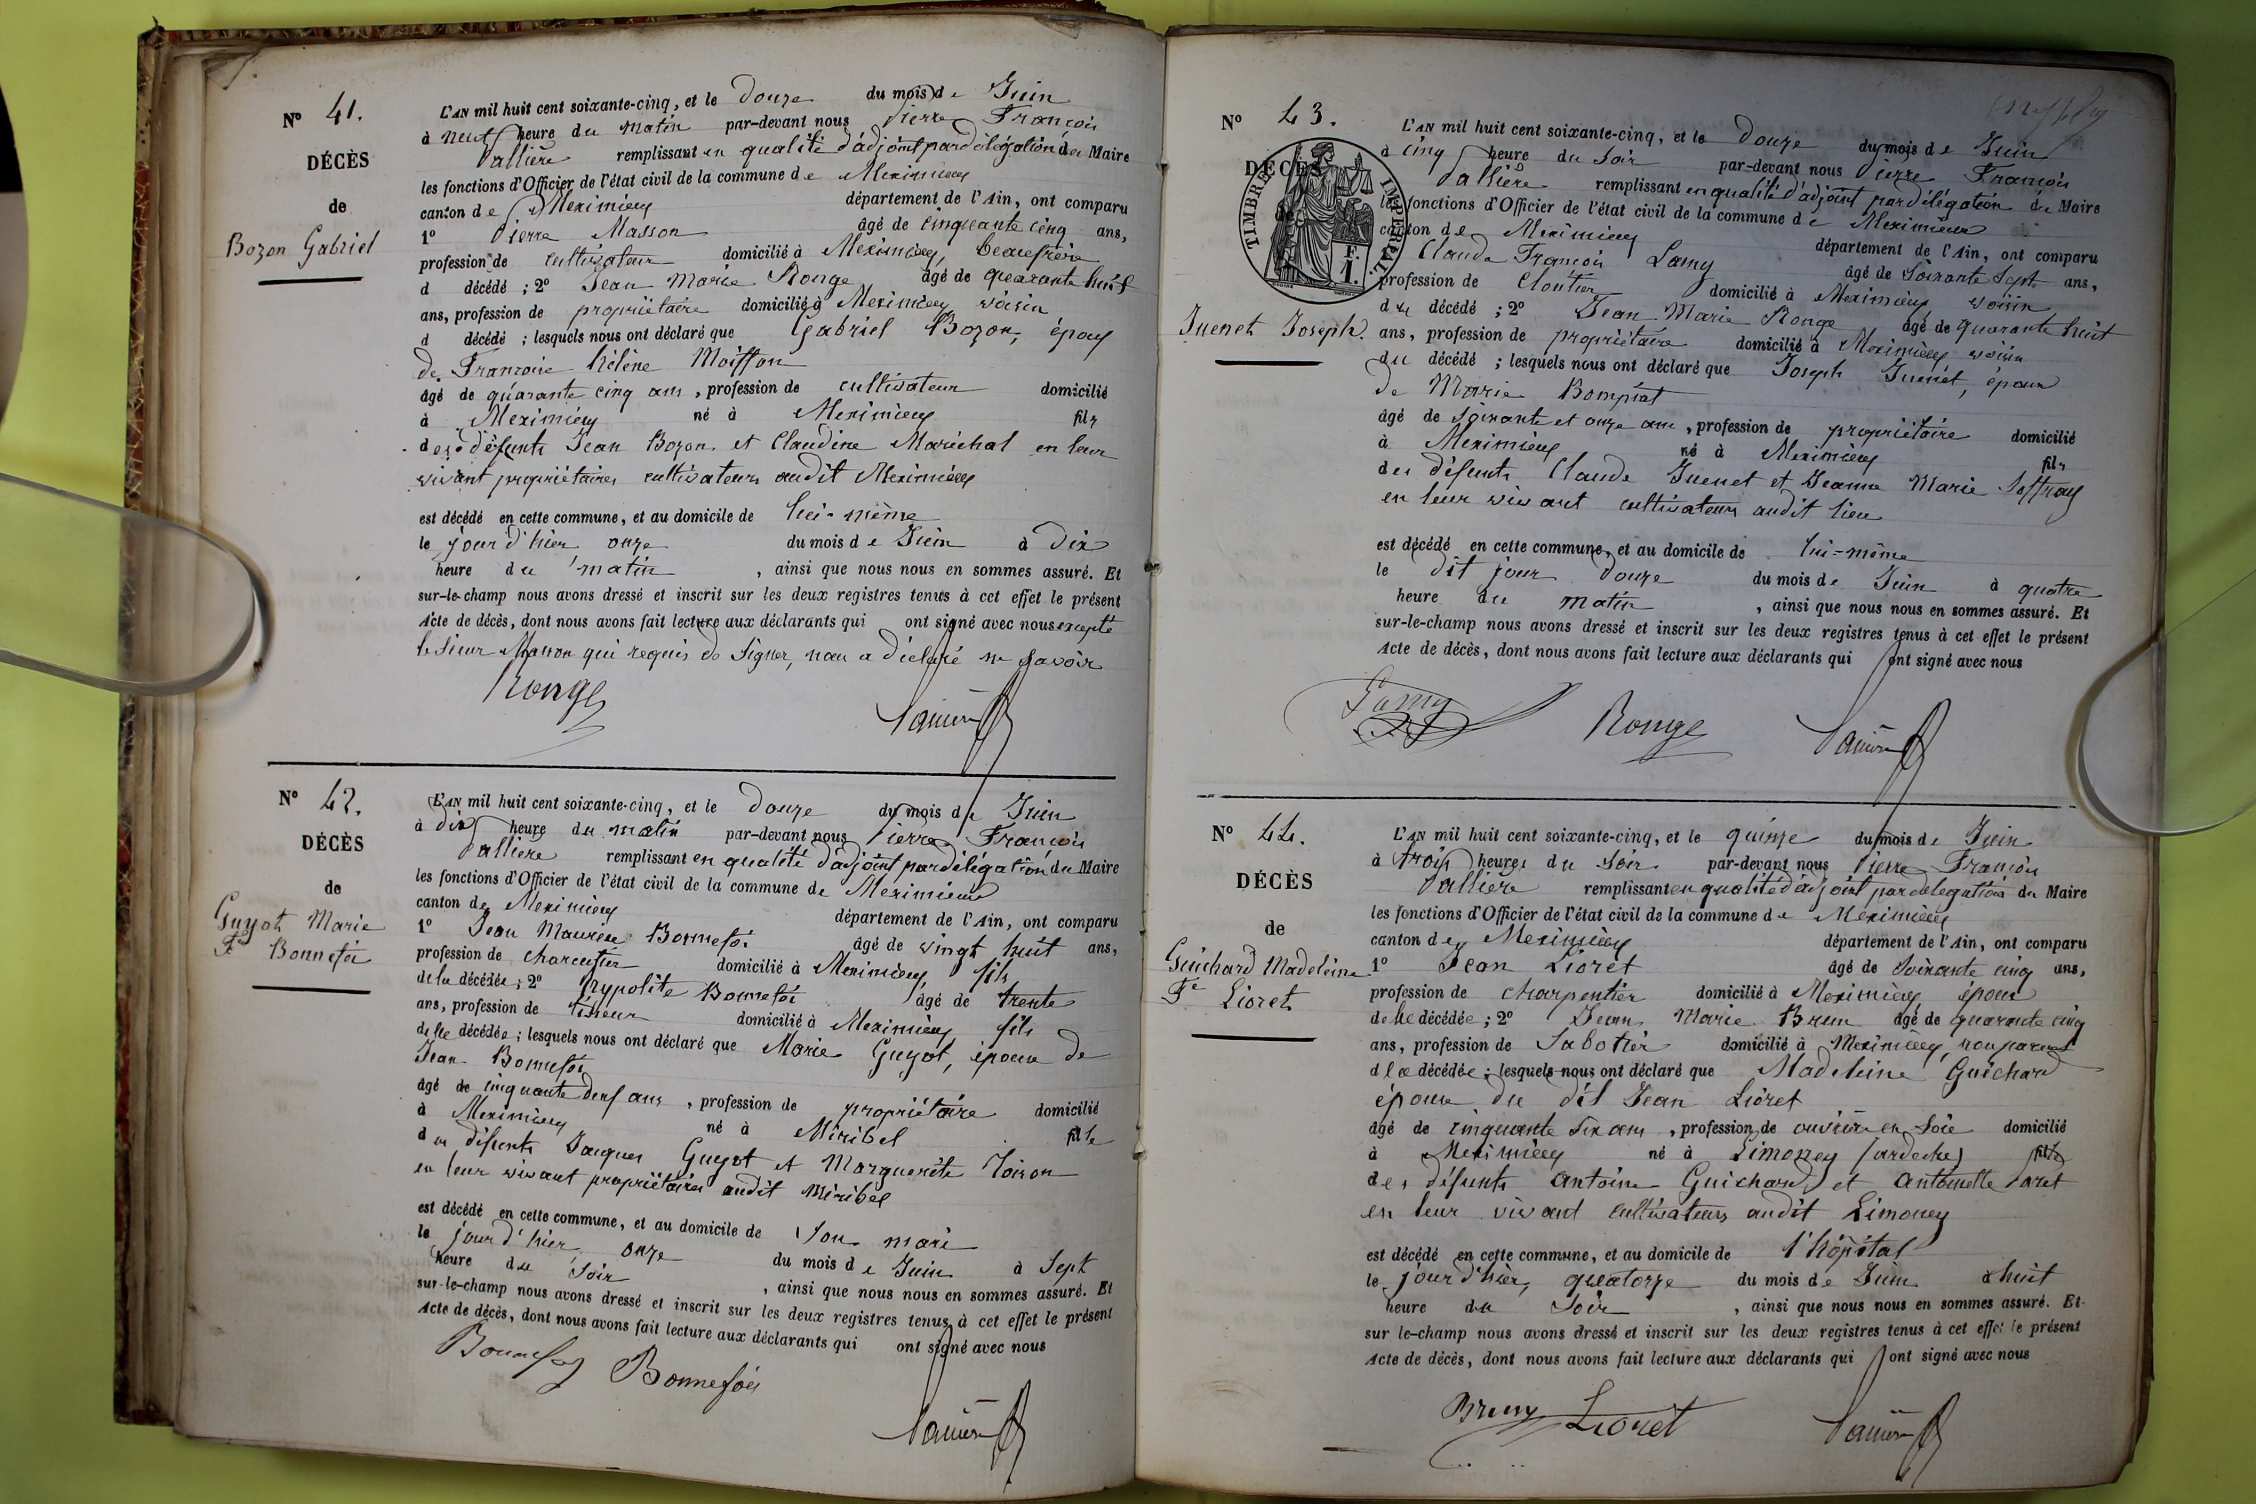 N° 41.
DÉCÈS
de
Bozon Gabriel
L'AN mil huit cent soixante-cinq, et le douze du mois de Juin
à neuf heure du matin par-devant nous Pierre François
Vallière remplissant en qualité d'adjoint par délégation du Maire
les fonctions d'Officier de l'état civil de la commune de Meximieux
canton de Meximieux département de l'Ain, ont comparu
1° Pierre Masson âgé de cinquante cinq ans,
profession de cultivateur domicilié à Meximieux, beaufrère
d décédé ; 2° Jean Marie Ronge âgé de quarante huit
ans, profession de propriétaire domicilié à Meximieux voisin
d décédé ; lesquels nous ont déclaré que Gabriel Bozon, époux
de Françoise hélène Moiffon
âgé de quarante cinq ans, profession de cultivateur domicilié
à Meximieux né à Meximieux fils
des défunts Jean Bozon et Claudine Maréchal en leur
vivant propriétaires cultivateurs audit Meximieux
est décédé en cette commune, et au domicile de lui-même
le jour d'hier onze du mois de Juin à dix
heure du matin, ainsi que nous nous en sommes assuré. Et
sur-le-champ nous avons dressé et inscrit sur les deux registres tenus à cet effet le présent
Acte de décès, dont nous avons fait lecture aux déclarants qui ont signé avec nous excepté
le sieur Masson qui requis de signer, nous a déclaré ne savoir
Ronge
N° 42.
DÉCÈS
de
Guyot Marie
Fe Bonnefoi
L'AN mil huit cent soixante-cinq, et le douze du mois de Juin
à dix heure du matin par-devant nous Pierre François
Vallière remplissant en qualité d'adjoint par délégation du Maire
les fonctions d'Officier de l'état civil de la commune de Meximieux
canton de Meximieux département de l'Ain, ont comparu
1° Jean Bonnefoi âgé de vingt huit ans,
profession de charcutier domicilié à Meximieux, fils
de la décédée ; 2° hypolite Bonnefoi âgé de trente
ans, profession de domicilié à Meximieux fils
de lle décédée ; lesquels nous ont déclaré que Marie Guyot, épouse de
Jean Bonnefoi
âgé de cinquante deux ans, profession de propriétaire domicilié
à Meximieux né à Miribel fille
des défunts Jacques Guyot et Marguerite Toison
en leur vivant propriétaires audit Miribel
est décédé en cette commune, et au domicile de son mari
le jour d'hier, onze du mois de Juin à sept
heure du soir, ainsi que nous nous en sommes assuré. Et
sur-le-champ nous avons dressé et inscrit sur les deux registres tenus à cet effet le présent
Acte de décès, dont nous avons fait lecture aux déclarants qui ont signé avec nous
Bonnefoy Bonnefoi
N° 43.
DÉCÈS
de
TIMBRE IMPÉRIAL.
F.
1.
Juenet Joseph.
L'AN mil huit cent soixante-cinq, et le douze du mois de Juin
à cinq heure du soir par-devant nous Pierre François
Vallière remplissant en qualité d'adjoint par délégation du Maire
les fonctions d'Officier de l'état civil de la commune de Meximieux
canton de Meximieux département de l'Ain, ont comparu
Claude François Lamy âgé de soixante sept ans,
profession de cloutier domicilié à Meximieux voisin
du décédé ; 2° Jean Marie Ronge âgé de quarante huit
ans, profession de propriétaire domicilié à Meximieux voisin
du décédé ; lesquels nous ont déclaré que Joseph Juenet, époux
de Marie Bompiat
âgé de soixante et onze ans, profession de propriétaire domicilié
à Meximieux né à Meximieux fils
des défunts Claude Juenet et Jeanne Marie Joffray
en leur vivant cultivateurs audit lieu
est décédé en cette commune, et au domicile de lui-même
le dit jour douze du mois de Juin à quatre
heure du matin, ainsi que nous nous en sommes assuré. Et
sur-le-champ nous avons dressé et inscrit sur les deux registres tenus à cet effet le présent
Acte de décès, dont nous avons fait lecture aux déclarants qui ont signé avec nous
Lamy Ronge
N° 44.
DÉCÈS
de
Guichard Madeleine
Fe Lioret
L'AN mil huit cent soixante-cinq, et le quinze du mois de Juin
à trois heures du soir par-devant nous Pierre François
Vallière remplissant en qualité d'adjoint par délégation du Maire
les fonctions d'Officier de l'état civil de la commune de Meximieux
canton de Meximieux département de l'Ain, ont comparu
1° Jean Lioret âgé de soixante cinq ans,
profession de charpentier domicilié à Meximieux, époux
de lle décédée ; 2° Jean Marie Brun âgé de quarante cinq
ans, profession de sabotier domicilié à Meximieux, non parent
d la décédée ; lesquels nous ont déclaré que Madeleine Guichard
épouse du dit Jean Lioret
âgé de cinquante six ans, profession de ouvrière en soie domicilié
à Meximieux né à Limoney (ardèche) fille
des défunts Antoine Guichard et Antoinette
en leur vivant cultivateurs audit Limoney
est décédé en cette commune, et au domicile de l'hôpital
le jour d'hier, quatorze du mois de Juin à huit
heure du soir, ainsi que nous nous en sommes assuré. Et
sur le-champ nous avons dressé et inscrit sur les deux registres tenus à cet effet le présent
Acte de décès, dont nous avons fait lecture aux déclarants qui ont signé avec nous
Brun Lioret